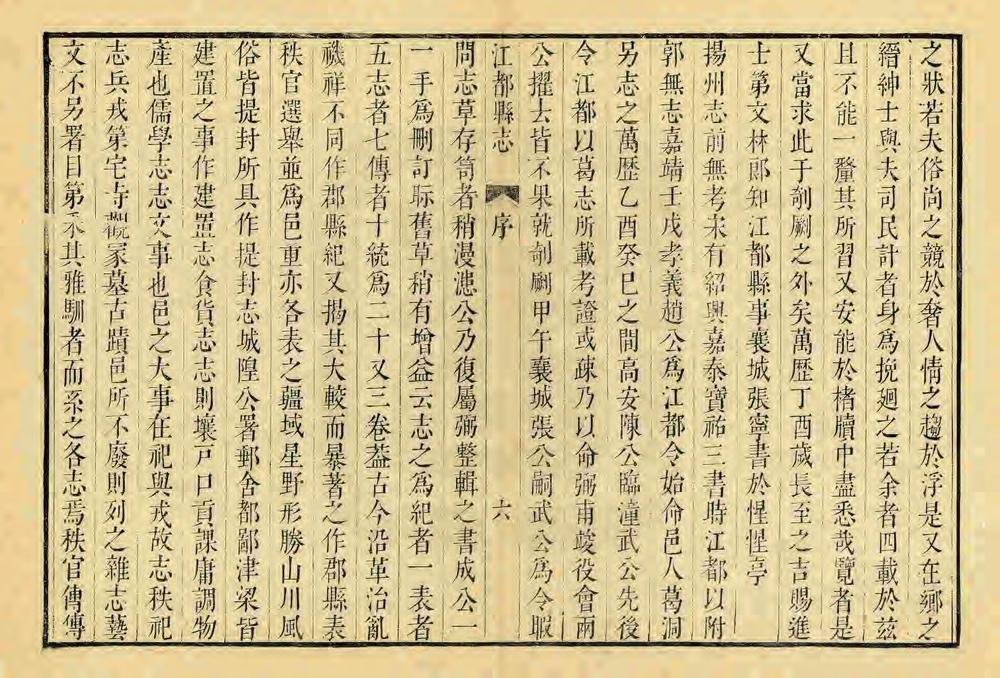 之狀若夫俗尚之競於奢人情之趨於浮是又在鄉之
縉紳士與夫司民計者身爲挽廻之若余者四載於兹
且不能一釐其所習又安能於楮牘中盡悉哉覽者是
又當求此于剞劂之外矣萬歷丁酉歲長至之吉賜進
士第文林郎知江都縣事襄城張寧書於惺惺亭
揚州志前無考宋有紹興嘉泰寶祐三書時江都以附
郭無志嘉靖壬戌孝義趙公爲江都令始命邑人葛洞
另志之萬歷乙酉癸巳之間高安陳公臨潼武公先後
令江都以葛志所載考證或疎乃以命弼甫竣役會兩
公擢去皆不果就剞劂甲午襄城張公嗣武公爲令暇
江都縣志 序 六
問志草存笥者稍漫漶公乃復屬弼整輯之書成公一
一手爲刪訂眎舊草稍有增益云志之爲紀者一表者
五志者七傳者十統爲二十又三卷葢古今沿革治亂
禨祥不同作郡縣紀又揭其大較而暴著之作郡縣表
秩官選舉並爲邑重亦各表之疆域星野形勝山川風
俗皆提封所具作提封志城隍公署郵舍都鄙津梁皆
建置之事作建置志食貨志志則壤戸口貢課庸調物
產也儒學志志文事也邑之大事在祀與戎故志秩祀
志兵戎第宅寺觀冡墓古蹟邑所不廢則列之雜志藝
文不另署目第采其雅馴者而系之各志焉秩官傳傳